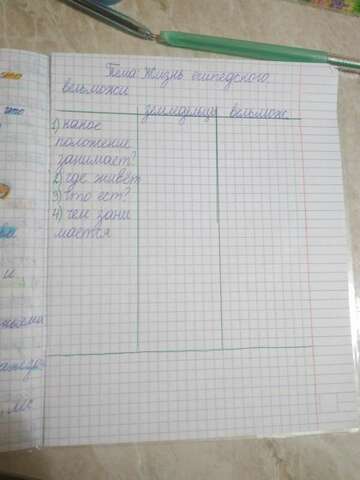 Тема: Жизнь египедского
вельможи
земледельцы вельмож
1) какое
положение
занимает?
2) где живёт
3) что ест?
4) чем зани
мается
это
это
и